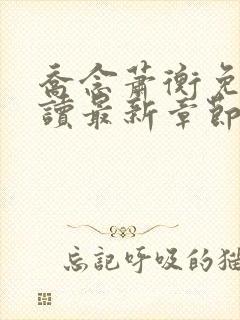 喬念蕭衡免
讀最新章節
忘記呼吸的猫